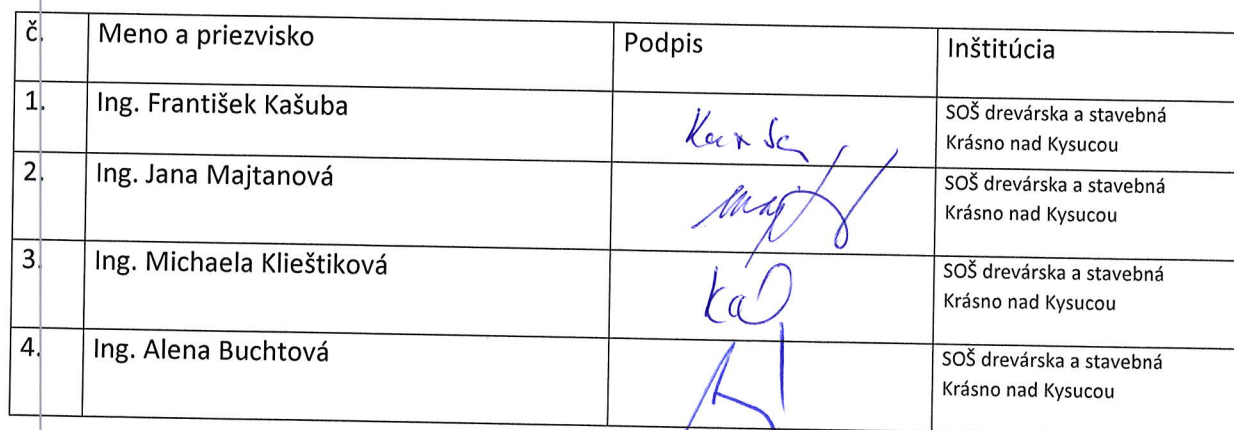 č. Meno a priezvisko Podpis Inštitúcia
1. Ing. František Kašuba SOŠ drevárska a stavebná
Krásno nad Kysucou
2. Ing. Jana Majtanová SOŠ drevárska a stavebná
Krásno nad Kysucou
3. Ing. Michaela Klieštiková SOŠ drevárska a stavebná
Krásno nad Kysucou
4. Ing. Alena Buchtová SOŠ drevárska a stavebná
Krásno nad Kysucou